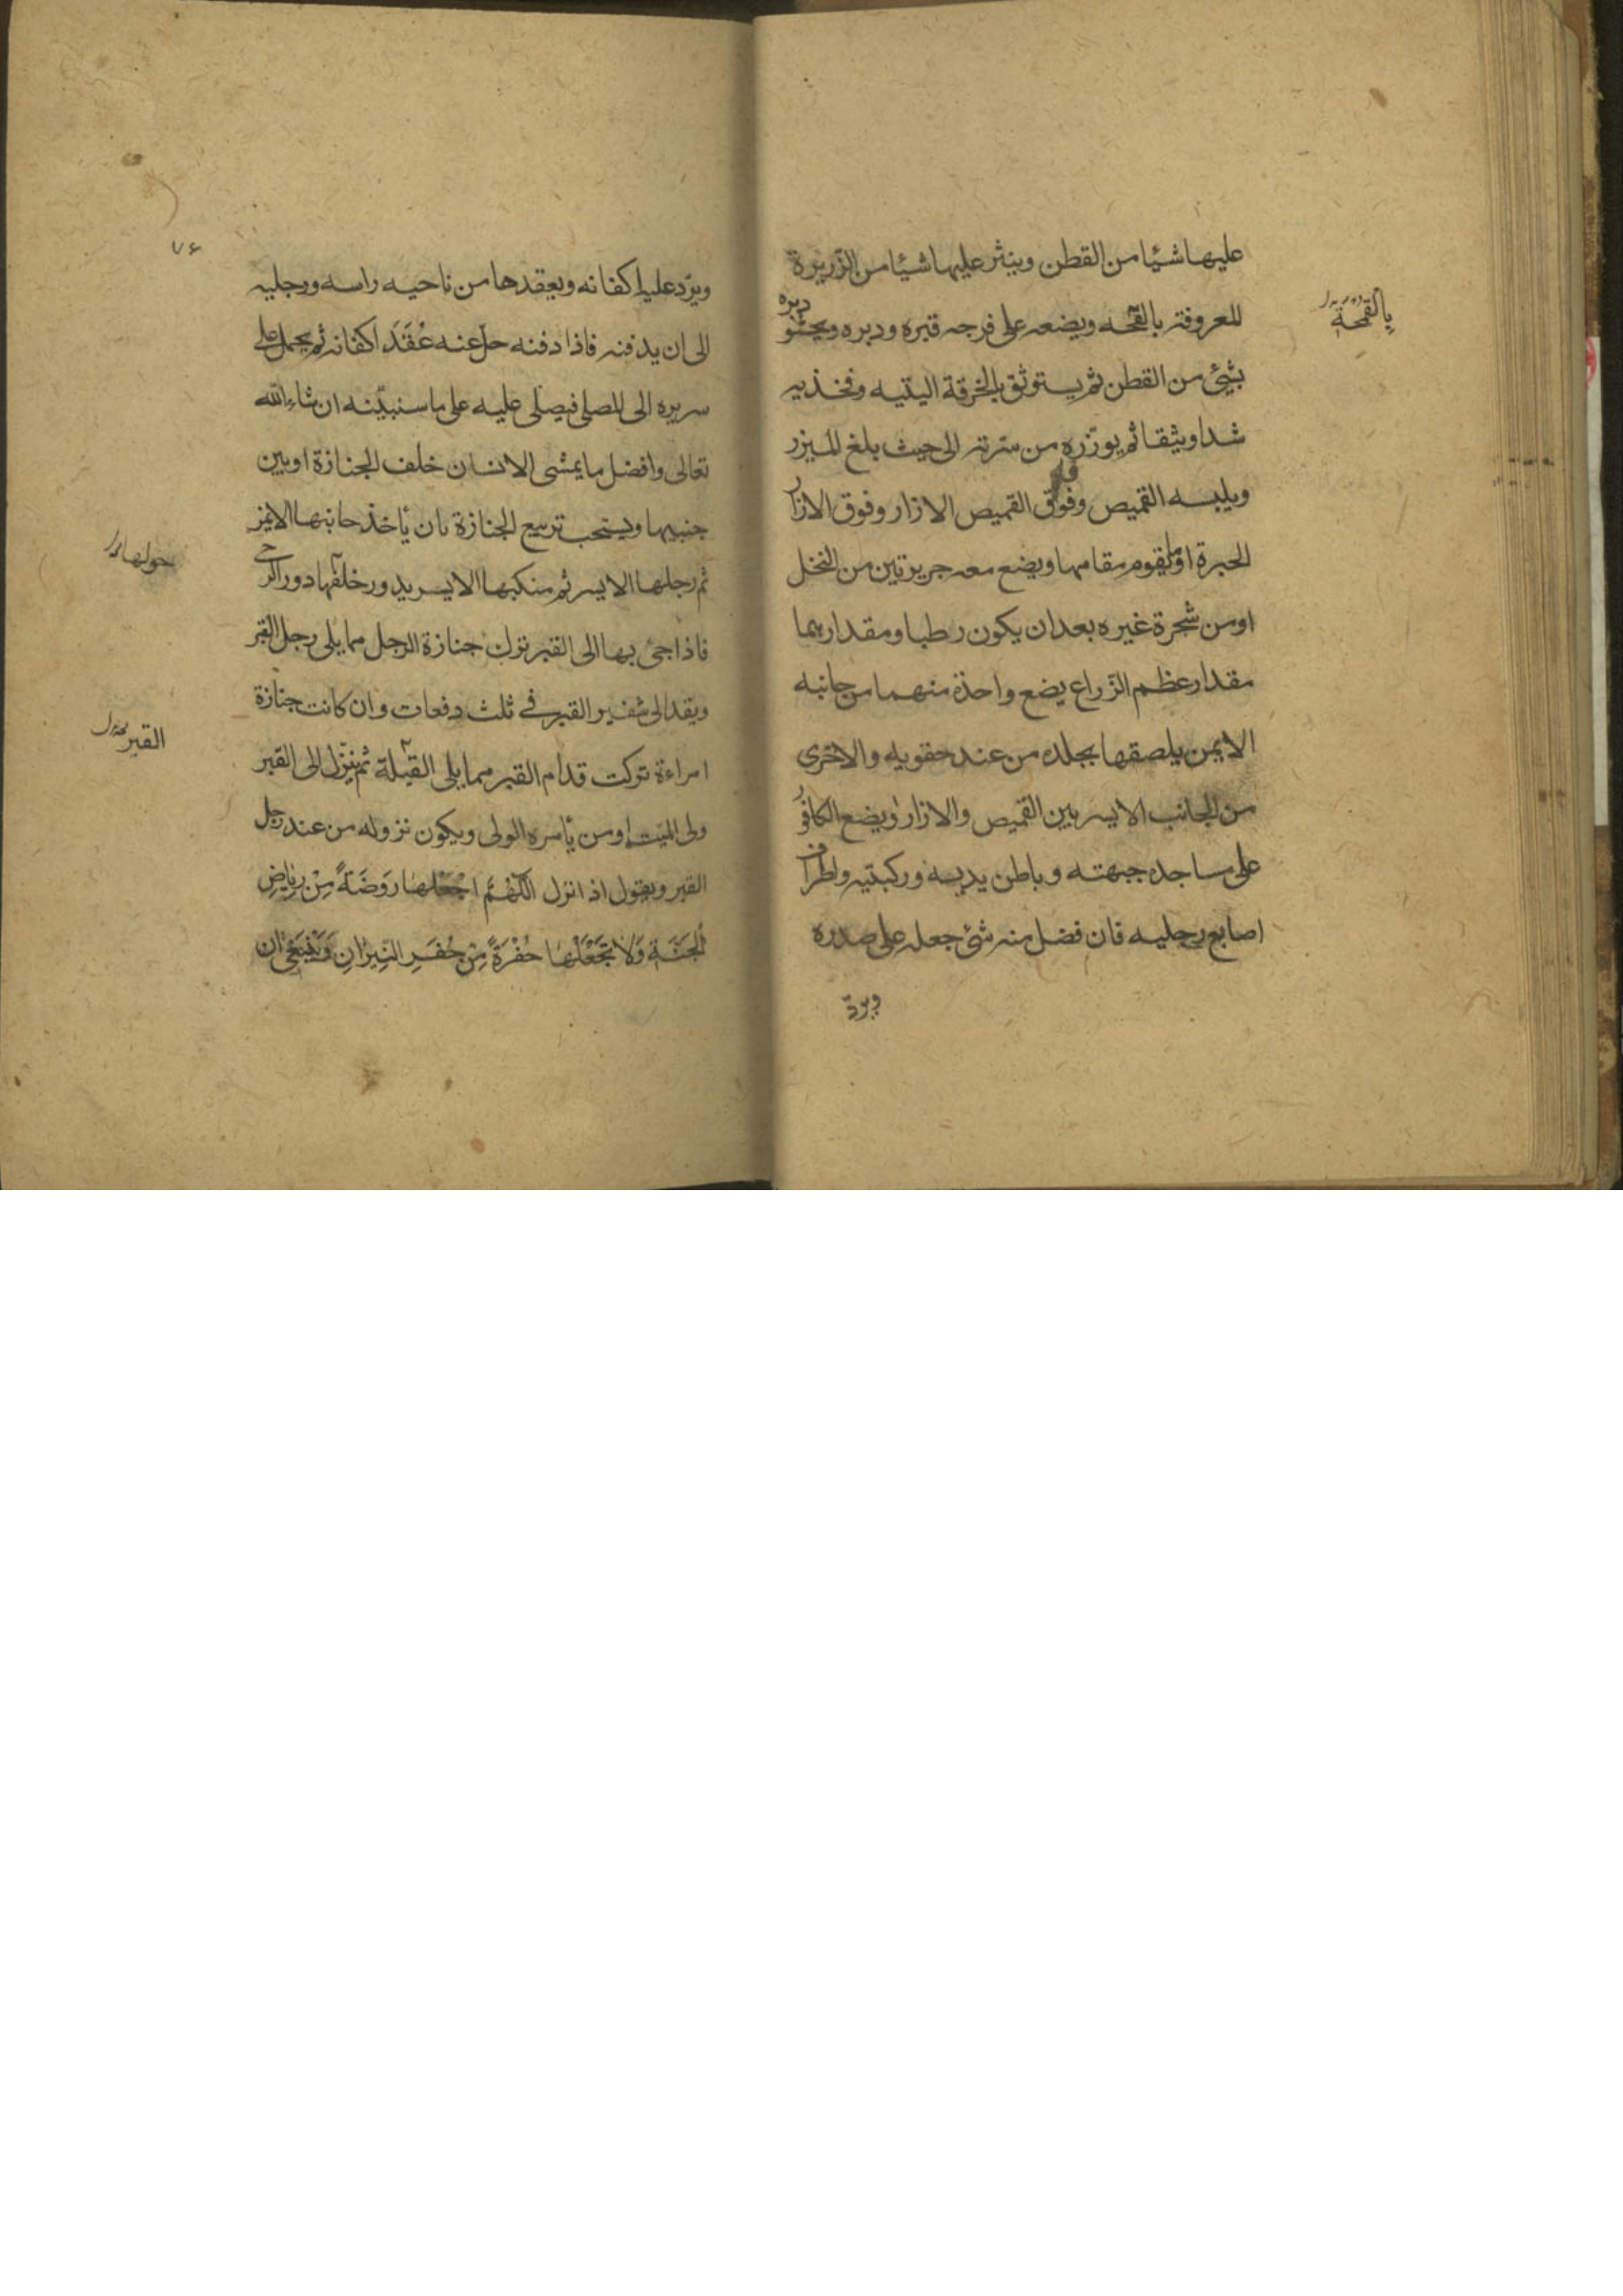 عليها شيئا من القطن وينثر عليها شيئا من الزريرة
المعروفة بالقمحه ويضعه على فرجه قبره ودبره ويحشو
دبره
بالقمحة
بشيئ من القطن ثم يستوثق بالخرقة اليتيه وفخذيه
شدا وثيقا ثم يوزره من سرته الى حيث بلغ الميزر
ويلبسه القميص وفوق القميص الازار وفوق الازار
الحبرة او ما يقوم مقامها ويضع معه جريرتين من النخل
او من شجرة غيره بعد ان يكون رطبا ومقدارهما
مقدار عظم الزراع يضع واحذة منهما من جانبه
الايمن يلصقها بجلده من عند حقويه والاخرى
من الجانب الايسر بين القميص والازار ويضع الكافور
على مساجده جبهته وباطن يديه وركبتيه واطراف
اصابع رجليه فان فضل منه شئ جعله على صدره
ويردّ
٧۶
ويردّ عليه اكفانه ويعقدها من ناحيه راسه ورجليه
الى ان يدفنه فاذا دفنه حل عنه عُقَدَ اكفانه ثم يحمل على
سريره الى المصلى فيصلى عليه على ما سنبيّنه ان شاء الله
تعالى وافضل ما يمشى الانسان خلف الجنازة او بين
جنبيها ويستحب تربيع الجنازة بان يأخذ جانبها الايمن
ثم رجلها الايسر ثم منكبها الايسر يدور خلفها دور الرحى
حولها
فاذا جئ بها الى القبر ترك جنازة الرجل مما يلى رجل القبر
ويقد الى شفير القبر فى ثلث دفعات وان كانت جنازة
امراءة تركت قدام القبر مما يلى القبلة ثم ينزّل الى القبر
القبر
ولى الميت او من يأمره الولى ويكون نزوله من عند رجل
القبر ويقول اذ انزل اللّهُمَّ اجْعَلْهَا رَوضَةً مِنْ رِيَاضِ
الْجَنَّةِ وَلَا تَجْعَلْهَا حُفْرَةً مِنْ حُفَرِ النِّيرَانِ وَيَنْبَغى ان